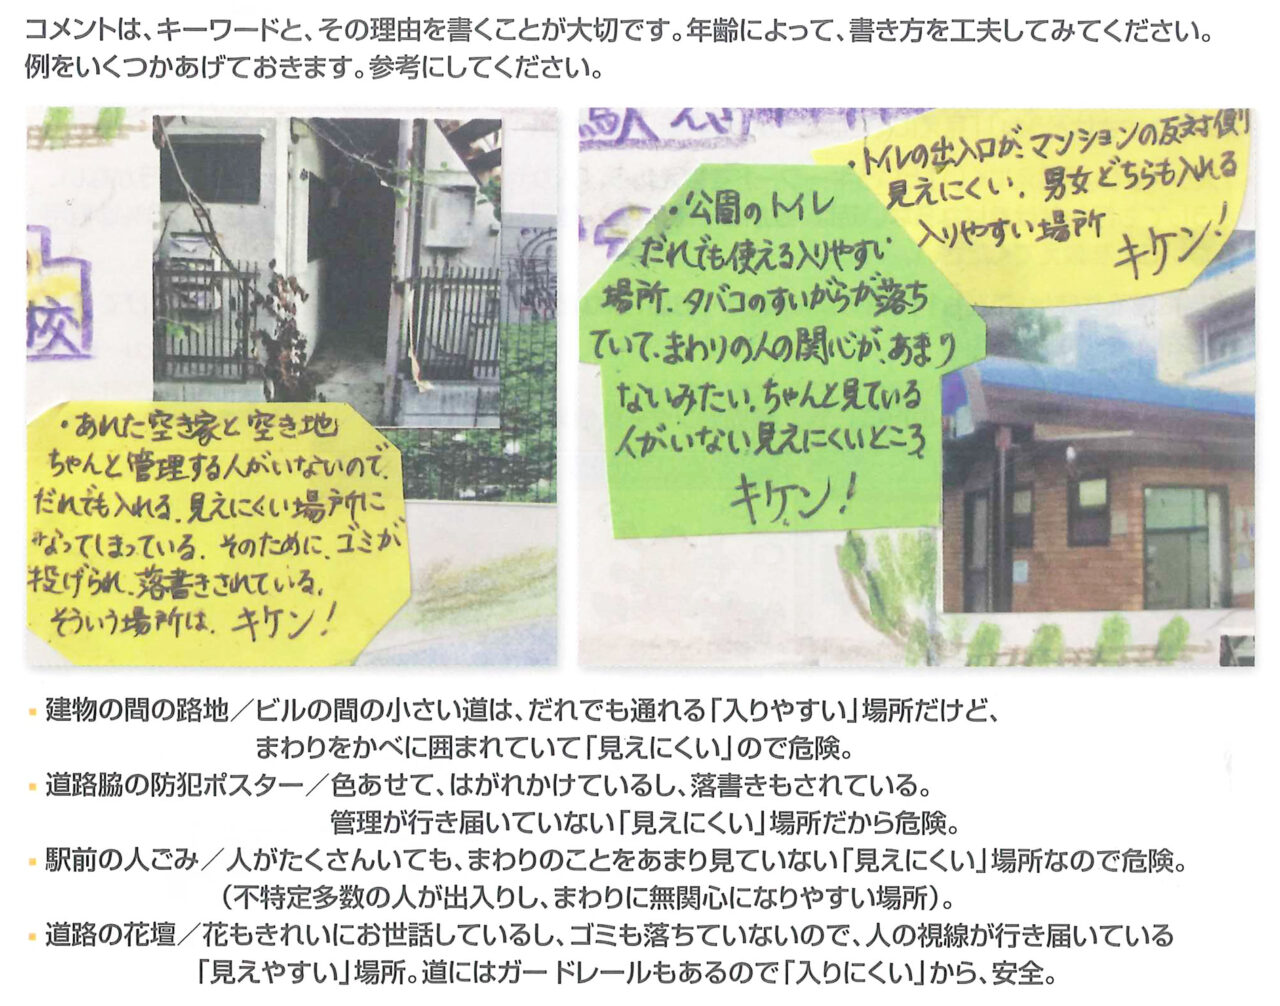 コメントは、キーワードと、その理由を書くことが大切です。年齢によって、書き方を工夫してみてください。
例をいくつかあげておきます。参考にしてください。
校
・あれた空き家と空き地
ちゃんと管理する人がいないので、
だれでも入れる。見えにくい場所に
なってしまっている。そのために、ゴミが
投げられ、落書きされている。
そういう場所は、キケン!
・公園のトイレ
だれでも使える入りやすい
場所。タバコのすいがらが落ち
ていて、まわりの人の関心が、あまり
ないみたい。ちゃんと見ている
人がいない見えにくいところ。
キケン!
・トイレの出入口が、マンションの反対側
見えにくい。男女どちらも入れる
入りやすい場所
キケン!
建物の間の路地／ビルの間の小さい道は、だれでも通れる「入りやすい」場所だけど、
まわりをかべに囲まれていて「見えにくい」ので危険。
道路脇の防犯ポスター／色あせて、はがれかけているし、落書きもされている。
管理が行き届いていない「見えにくい」場所だから危険。
駅前の人ごみ／人がたくさんいても、まわりのことをあまり見ていない「見えにくい」場所なので危険。
（不特定多数の人が出入りし、まわりに無関心になりやすい場所）。
道路の花壇／花もきれいにお世話しているし、ゴミも落ちていないので、人の視線が行き届いている
「見えやすい」場所。道にはガードレールもあるので「入りにくい」から、安全。